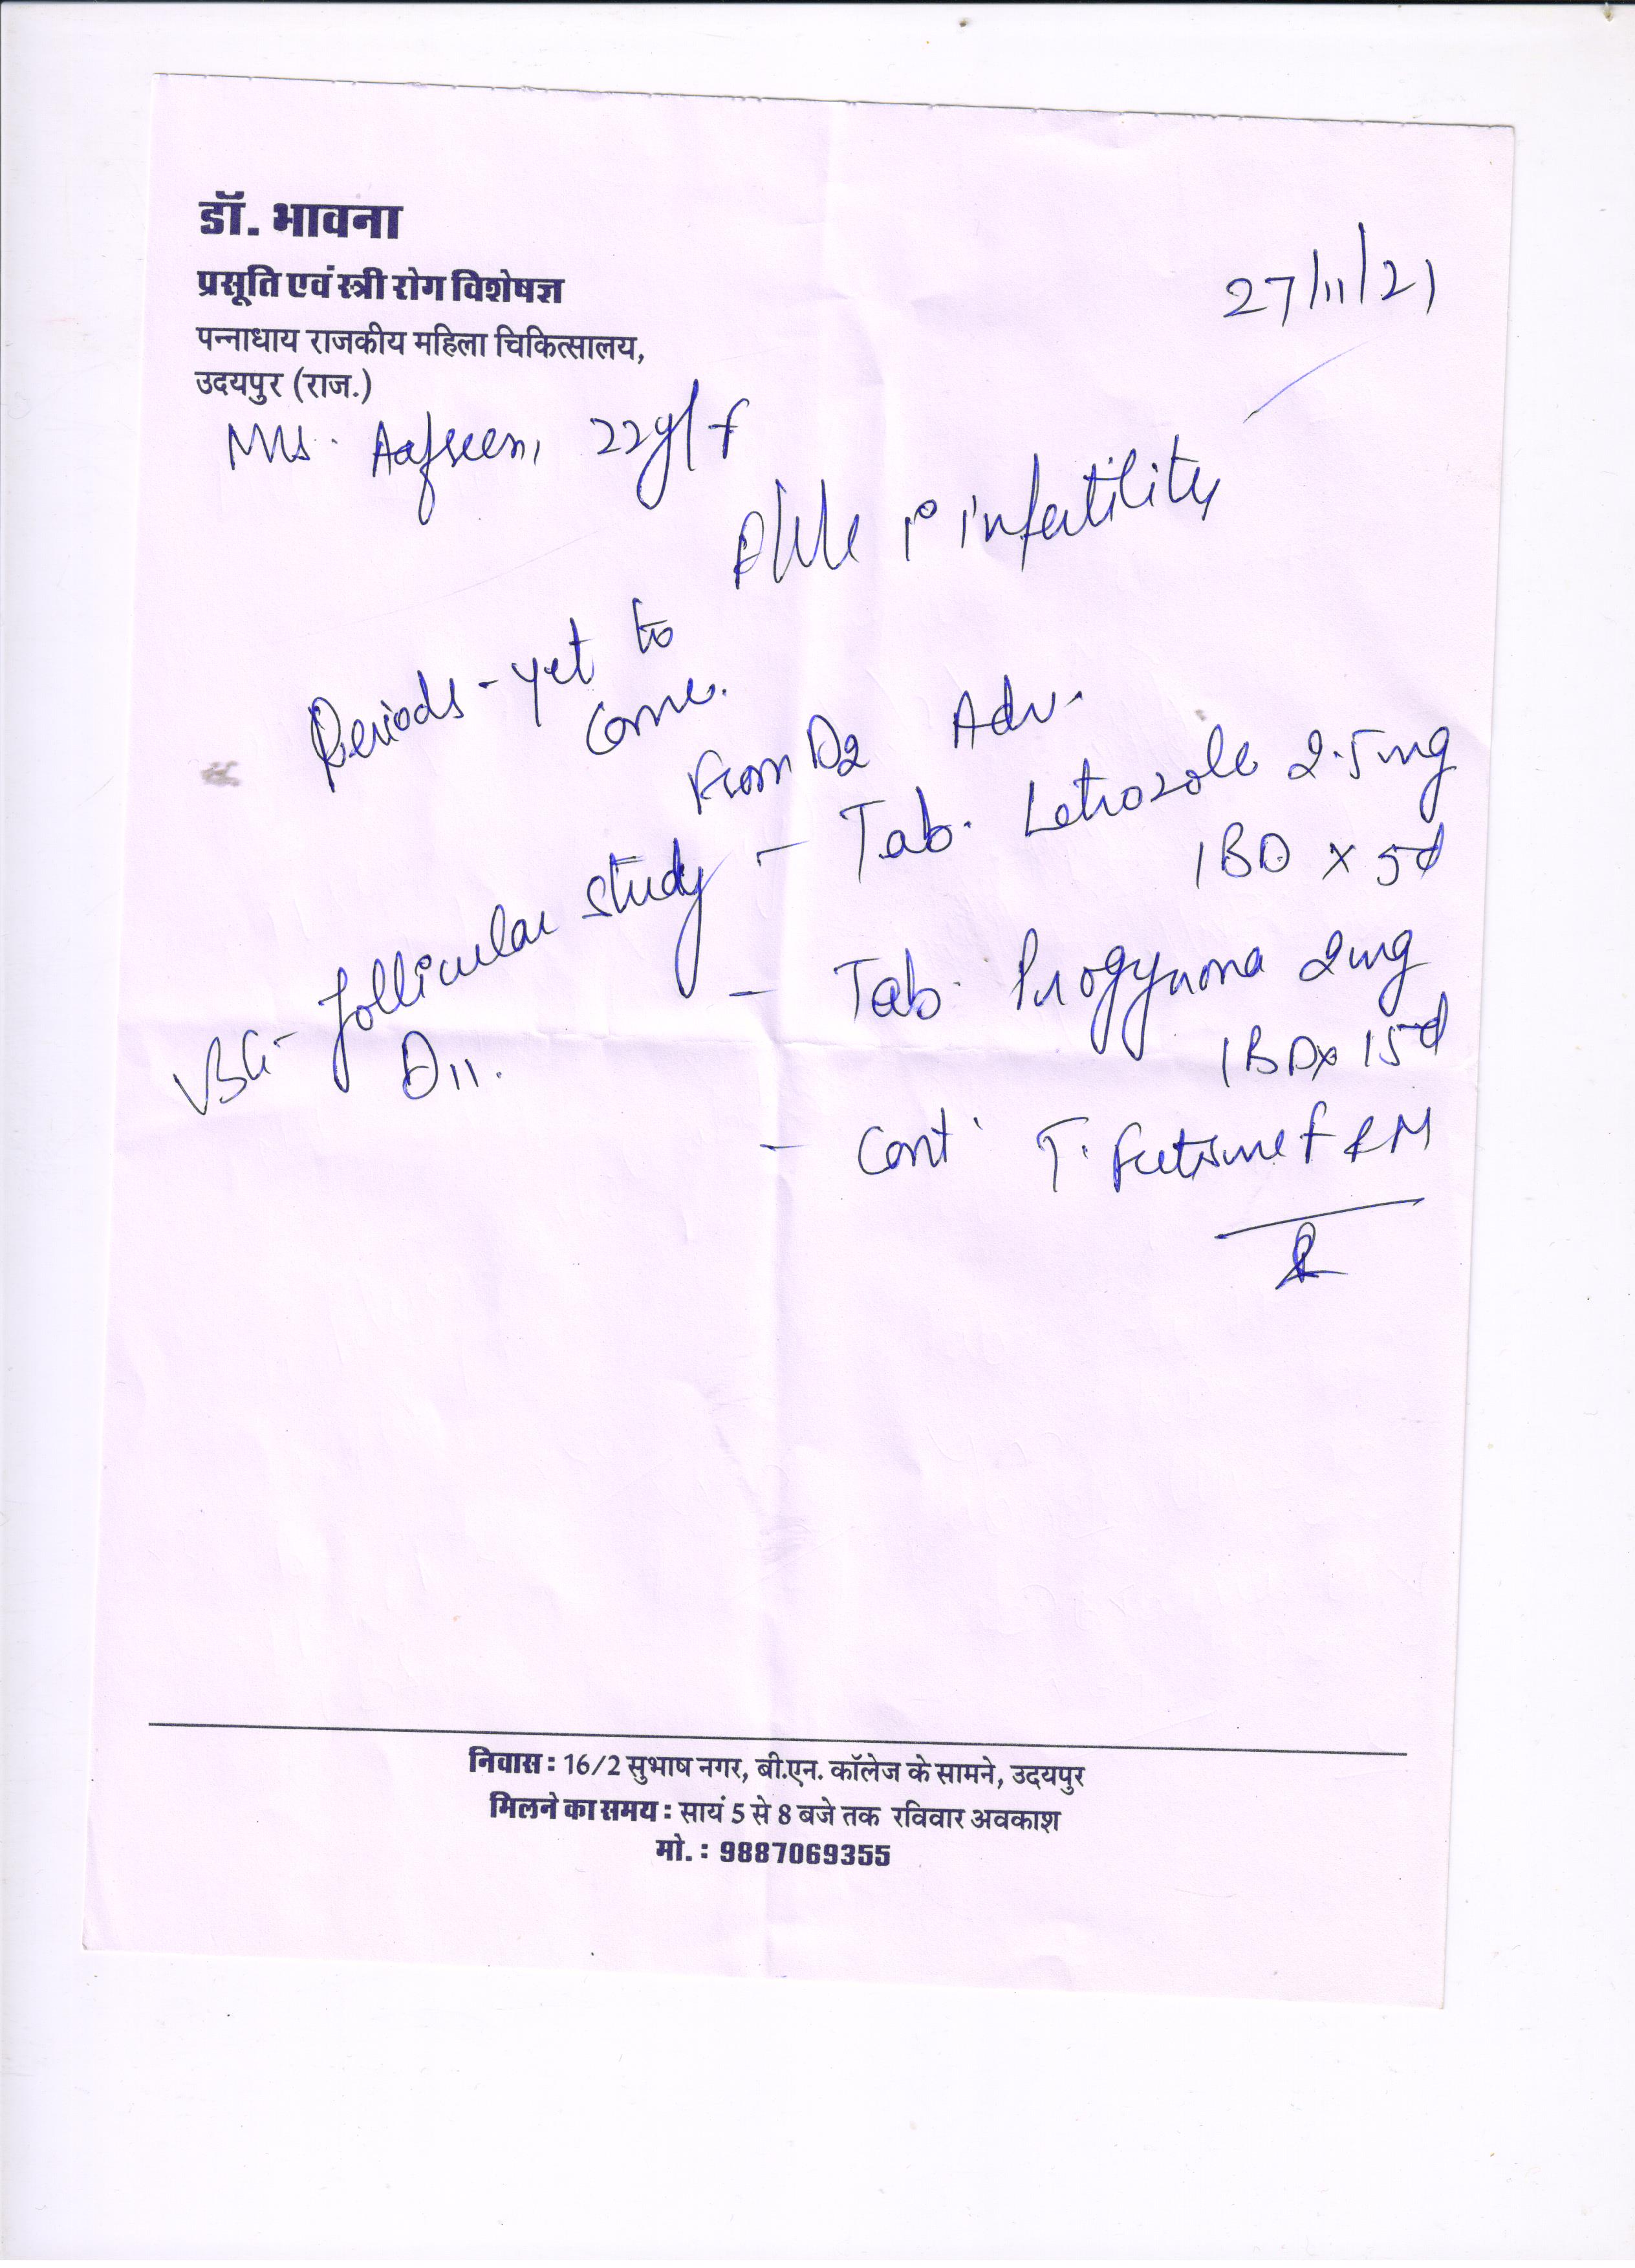 डॉ. भावना
प्रसूति एवं स्त्री रोग विशेषज्ञ
पन्नाधाय राजकीय महिला चिकित्सालय,
उदयपुर (राज.)
27/11/21
Mrs. Aafreen, 22y/f
1° infertility
Periods - yet to
come.
Adv.
From D2
- Tab. Letrozole 2.5mg
1 BD x 5d
follicular study
D11.
- Tab. Progynova 2mg
1 BD x 15d
- Cont. T.
निवास : 16/2 सुभाष नगर, बी.एन. कॉलेज के सामने, उदयपुर
मिलने का समय : सायं 5 से 8 बजे तक रविवार अवकाश
मो. : 9887069355